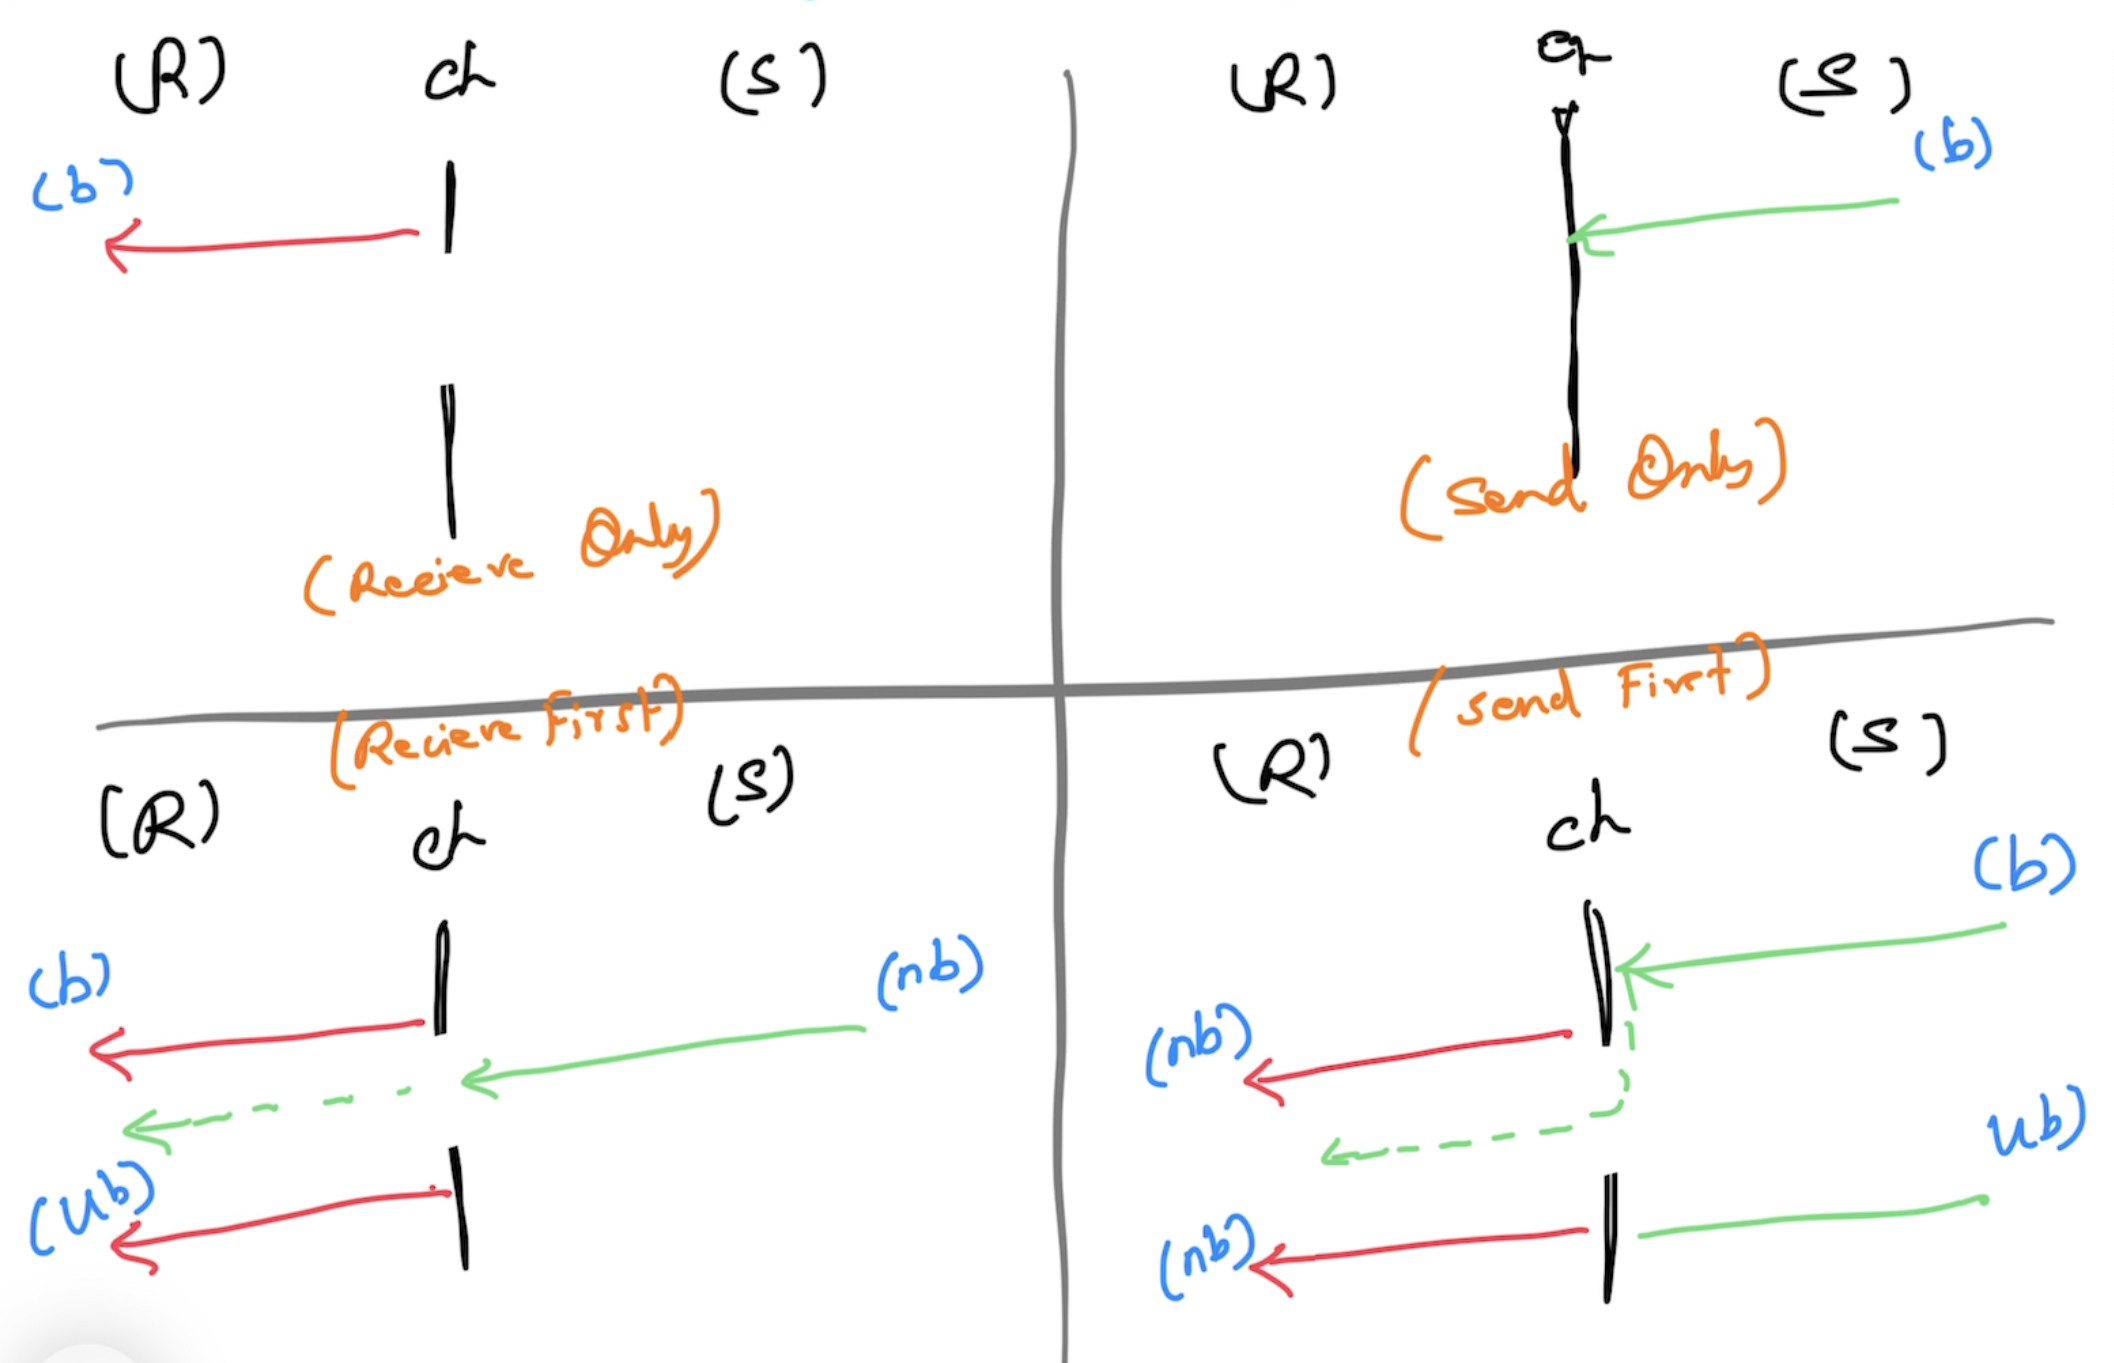 (R) ch (S)
(b)
(Recieve Only)
(R) ch (S)
(b)
(Send Only)
(Recieve First)
(R) ch (S)
(b) (nb)
(Ub)
(Send First)
(R) ch (S)
(b)
(nb)
Ub)
(nb)